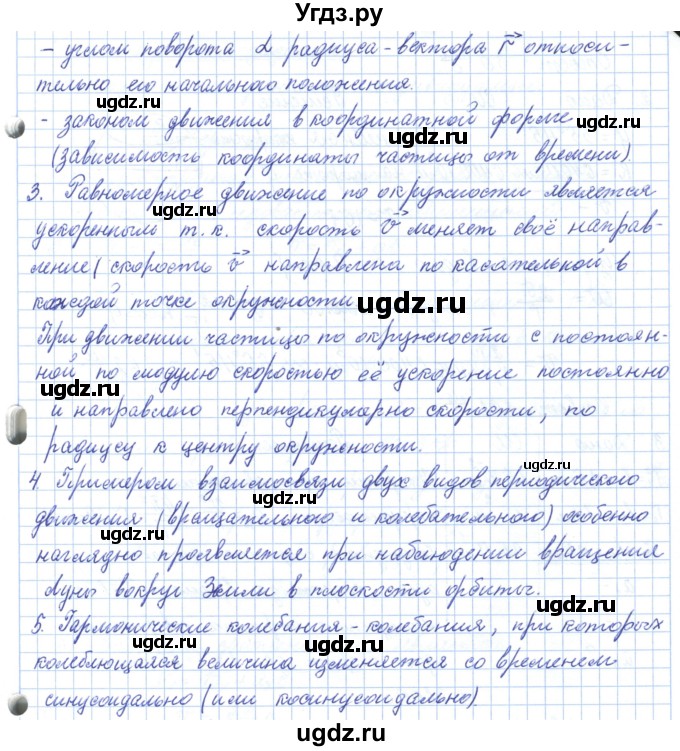 Угдз.ру
- углом поворота α радиуса-вектора r⃗ относи-
тельно его начального положения.
ugdz.ru ugdz.ru
- законом движения в координатной форме
ugdz.ru
(зависимость координаты частицы от времени).
3. Равномерное движение по окружности является
ugdz.ru
ускоренным т.к. скорость v⃗ меняет своё направ-
ление (скорость v⃗ направлена по касательной в
ugdz.ru ugdz.ru
каждой точке окружности
При движении частицы по окружности с постоян-
ной по модулю скоростью её ускорение постоянно
ugdz.ru ugdz.ru
и направлено перпендикулярно скорости, по
радиусу к центру окружности.
ugdz.ru
4 Примером взаимосвязи двух видов периодического
ugdz.ru
движения (вращательного и колебательного) особенно
наглядно проявляется при наблюдении вращения
ugdz.ru
Луны вокруг Земли в плоскости орбиты.
ugdz.ru
5. Гармонические колебания - колебания, при которых
ugdz.ru
колеблющаяся величина изменяется со временем
ugdz.ru
синусоидально (или косинусоидально).
ugdz.ru
ugdz.ru